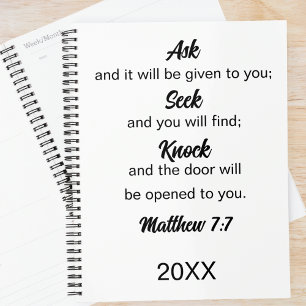 Week/Month
Ask
and it will be given to you;
Seek
and you will find;
Knock
and the door will
be opened to you.
Matthew 7:7
20XX